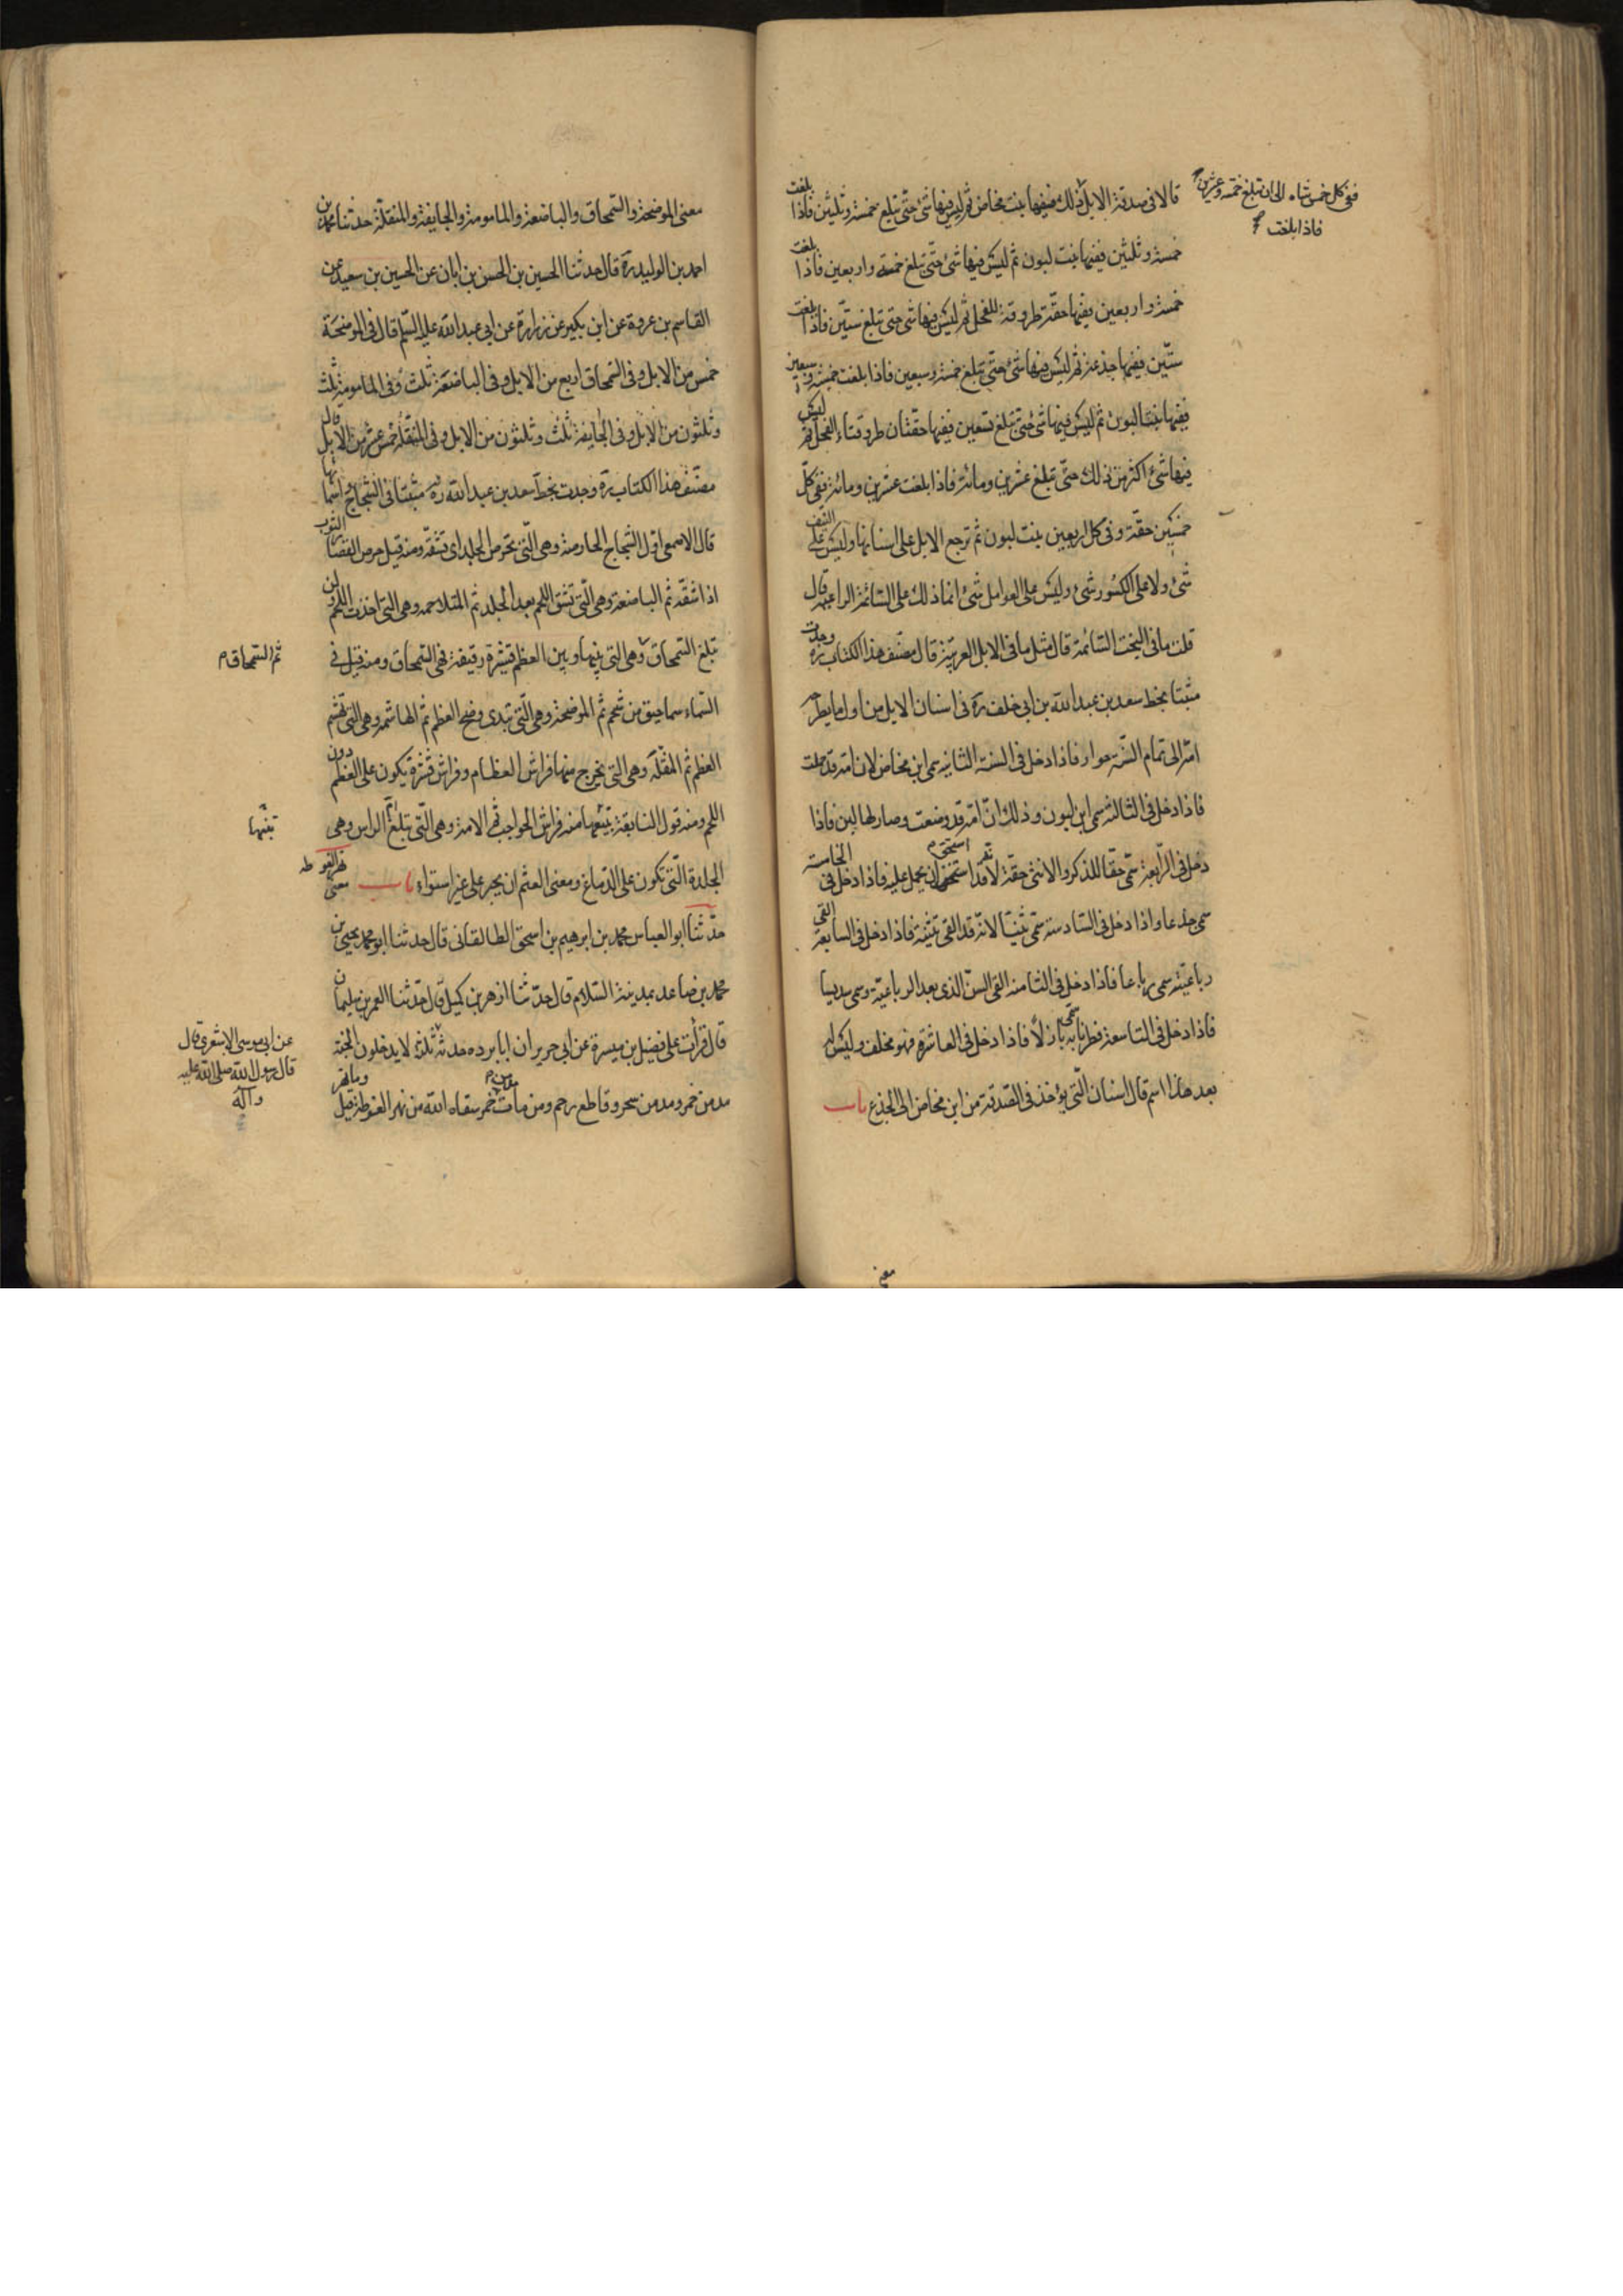 قالا فى صدقة الابل ذلك ففيها بنت مخاض ثم ليس فيها شئ حتى تبلغ خمسة وثلثين فاذا بلغت
ففى كل خمس شاه الى ان تبلغ خمسة وعشرين
فاذا بلغت
خمسة وثلثين ففيها بنت لبون ثم ليس فيها شئ حتى تبلغ خمسة واربعين فاذا بلغت
خمسة واربعين ففيها حقة طروقة الفحل ثم ليس فيها شئ حتى تبلغ ستين فاذا بلغت
ستين ففيها جذعة ثم ليس فيها شئ حتى تبلغ خمسة وسبعين فاذا بلغت خمسة وسبعين
ففيها بنتا لبون ثم ليس فيها شئ حتى تبلغ تسعين ففيها حقتان طروقتا الفحل ثم ليس
فيها شئ اكثر من ذلك حتى تبلغ عشرين ومائة فاذا بلغت عشرين ومائة ففى كل
خمسين حقة وفى كل اربعين بنت لبون ثم ترجع الابل على اسنانها وليس على النيف
شئ ولا على الكسور شئ وليس على العوامل شئ انما ذلك على السائمة الراعية قال
قلت ما فى البخت السائمة قال مثل ما فى الابل العربية قال مصنف هذا الكتاب ره وجدت
مثبتا بخط سعد بن عبد الله بن ابى خلف ره فى اسنان الابل من اول ما يطرحه
امه الى تمام السنة حوار فاذا دخل فى السنة الثانية سمى ابن مخاض لان امه قد حملت
فاذا دخل فى الثالثة سمى ابن لبون وذلك ان امه قد وضعت وصار لها لبن فاذا
دخل فى الرابعة سمى حقا للذكر والانثى حقة لانه قد استحق ان يحمل عليه فاذا دخل فى الخامسة
سمى جذعا واذا دخل فى السادسة سمى ثنيا لانه قد القى ثنيته فاذا دخل فى السابعة القى
رباعيته سمى رباعا فاذا دخل فى الثامنة القى السن الذى بعد الرباعية وسمى سديسا
فاذا دخل فى التاسعة فطر نابه سمى بازلا فاذا دخل فى العاشرة فهو مخلف وليس له
بعد هذا اسم قال اسنان التى يؤخذ فى الصدقة من ابن مخاض الى الجذع باب
معنى
معنى الموضحة والسمحاق والباضعة والمامومة والجايفة والمنقلة حدثنا محمد بن
احمد بن الوليد ره قال حدثنا الحسين بن الحسن بن ابان عن الحسين بن سعيد عن
القاسم بن عروة عن ابن بكير عن زرارة عن ابى عبد الله عليه السلم قال فى الموضحة
خمس من الابل وفى السمحاق اربع من الابل وفى الباضعة ثلث وفى المامومة ثلث
وثلثون من الابل وفى الجايفة ثلث وثلثون من الابل وفى المنقلة خمس عشر من الابل قال
مصنف هذا الكتاب ره وجدت بخط سعد بن عبد الله ره مثبتا فى الشجاج واسمائها
قال الاصمعى اول الشجاج الحارصة وهى التى تحرص الجلد اى تشقه ومنه قيل حرص القصار الثوب
اذا شقه ثم الباضعة وهى التى تشق اللحم بعد الجلد ثم المتلاحمة وهى التى اخذت اللحم ولن
تبلغ السمحاق وهى التى بينها وبين العظم قشرة رقيقة فهى السمحاق ومنه قيل فى
ثم السمحاق
السماء سماحيق من شحم ثم الموضحة وهى التى تبدى وضح العظم ثم الهاشمة وهى التى تهشم
العظم ثم المنقلة وهى التى يخرج منها فراش العظام وفراش قشرة يكون على العظم دون
اللحم ومنه قول النابغة يتبعها منه فراش الحواجب ثم الامة وهى التى تبلغ ام الراس وهى
يتبعها
الجلدة التى تكون على الدماغ ومعنى العثم ان يجبر على غير استواء باب معنى نهر الغوطة
حدثنا ابو العباس محمد بن ابرهيم بن اسحق الطالقانى قال حدثنا ابو محمد يحيى بن
محمد بن صاعد بمدينة السلام قال حدثنا ازهر بن كميل قال حدثنا المعمر بن سليمان
قال قرات على فضيل بن ميسرة عن ابى حرير ان ابا برده حدثه ثلثة لا يدخلون الجنة
عن ابى موسى الاشعرى قال
قال رسول الله صلى الله عليه
وآله
مدمن خمر ومدمن سحر وقاطع رحم ومن مات مدمن خمر سقاه الله من نهر الغوطة قيل وما نهر